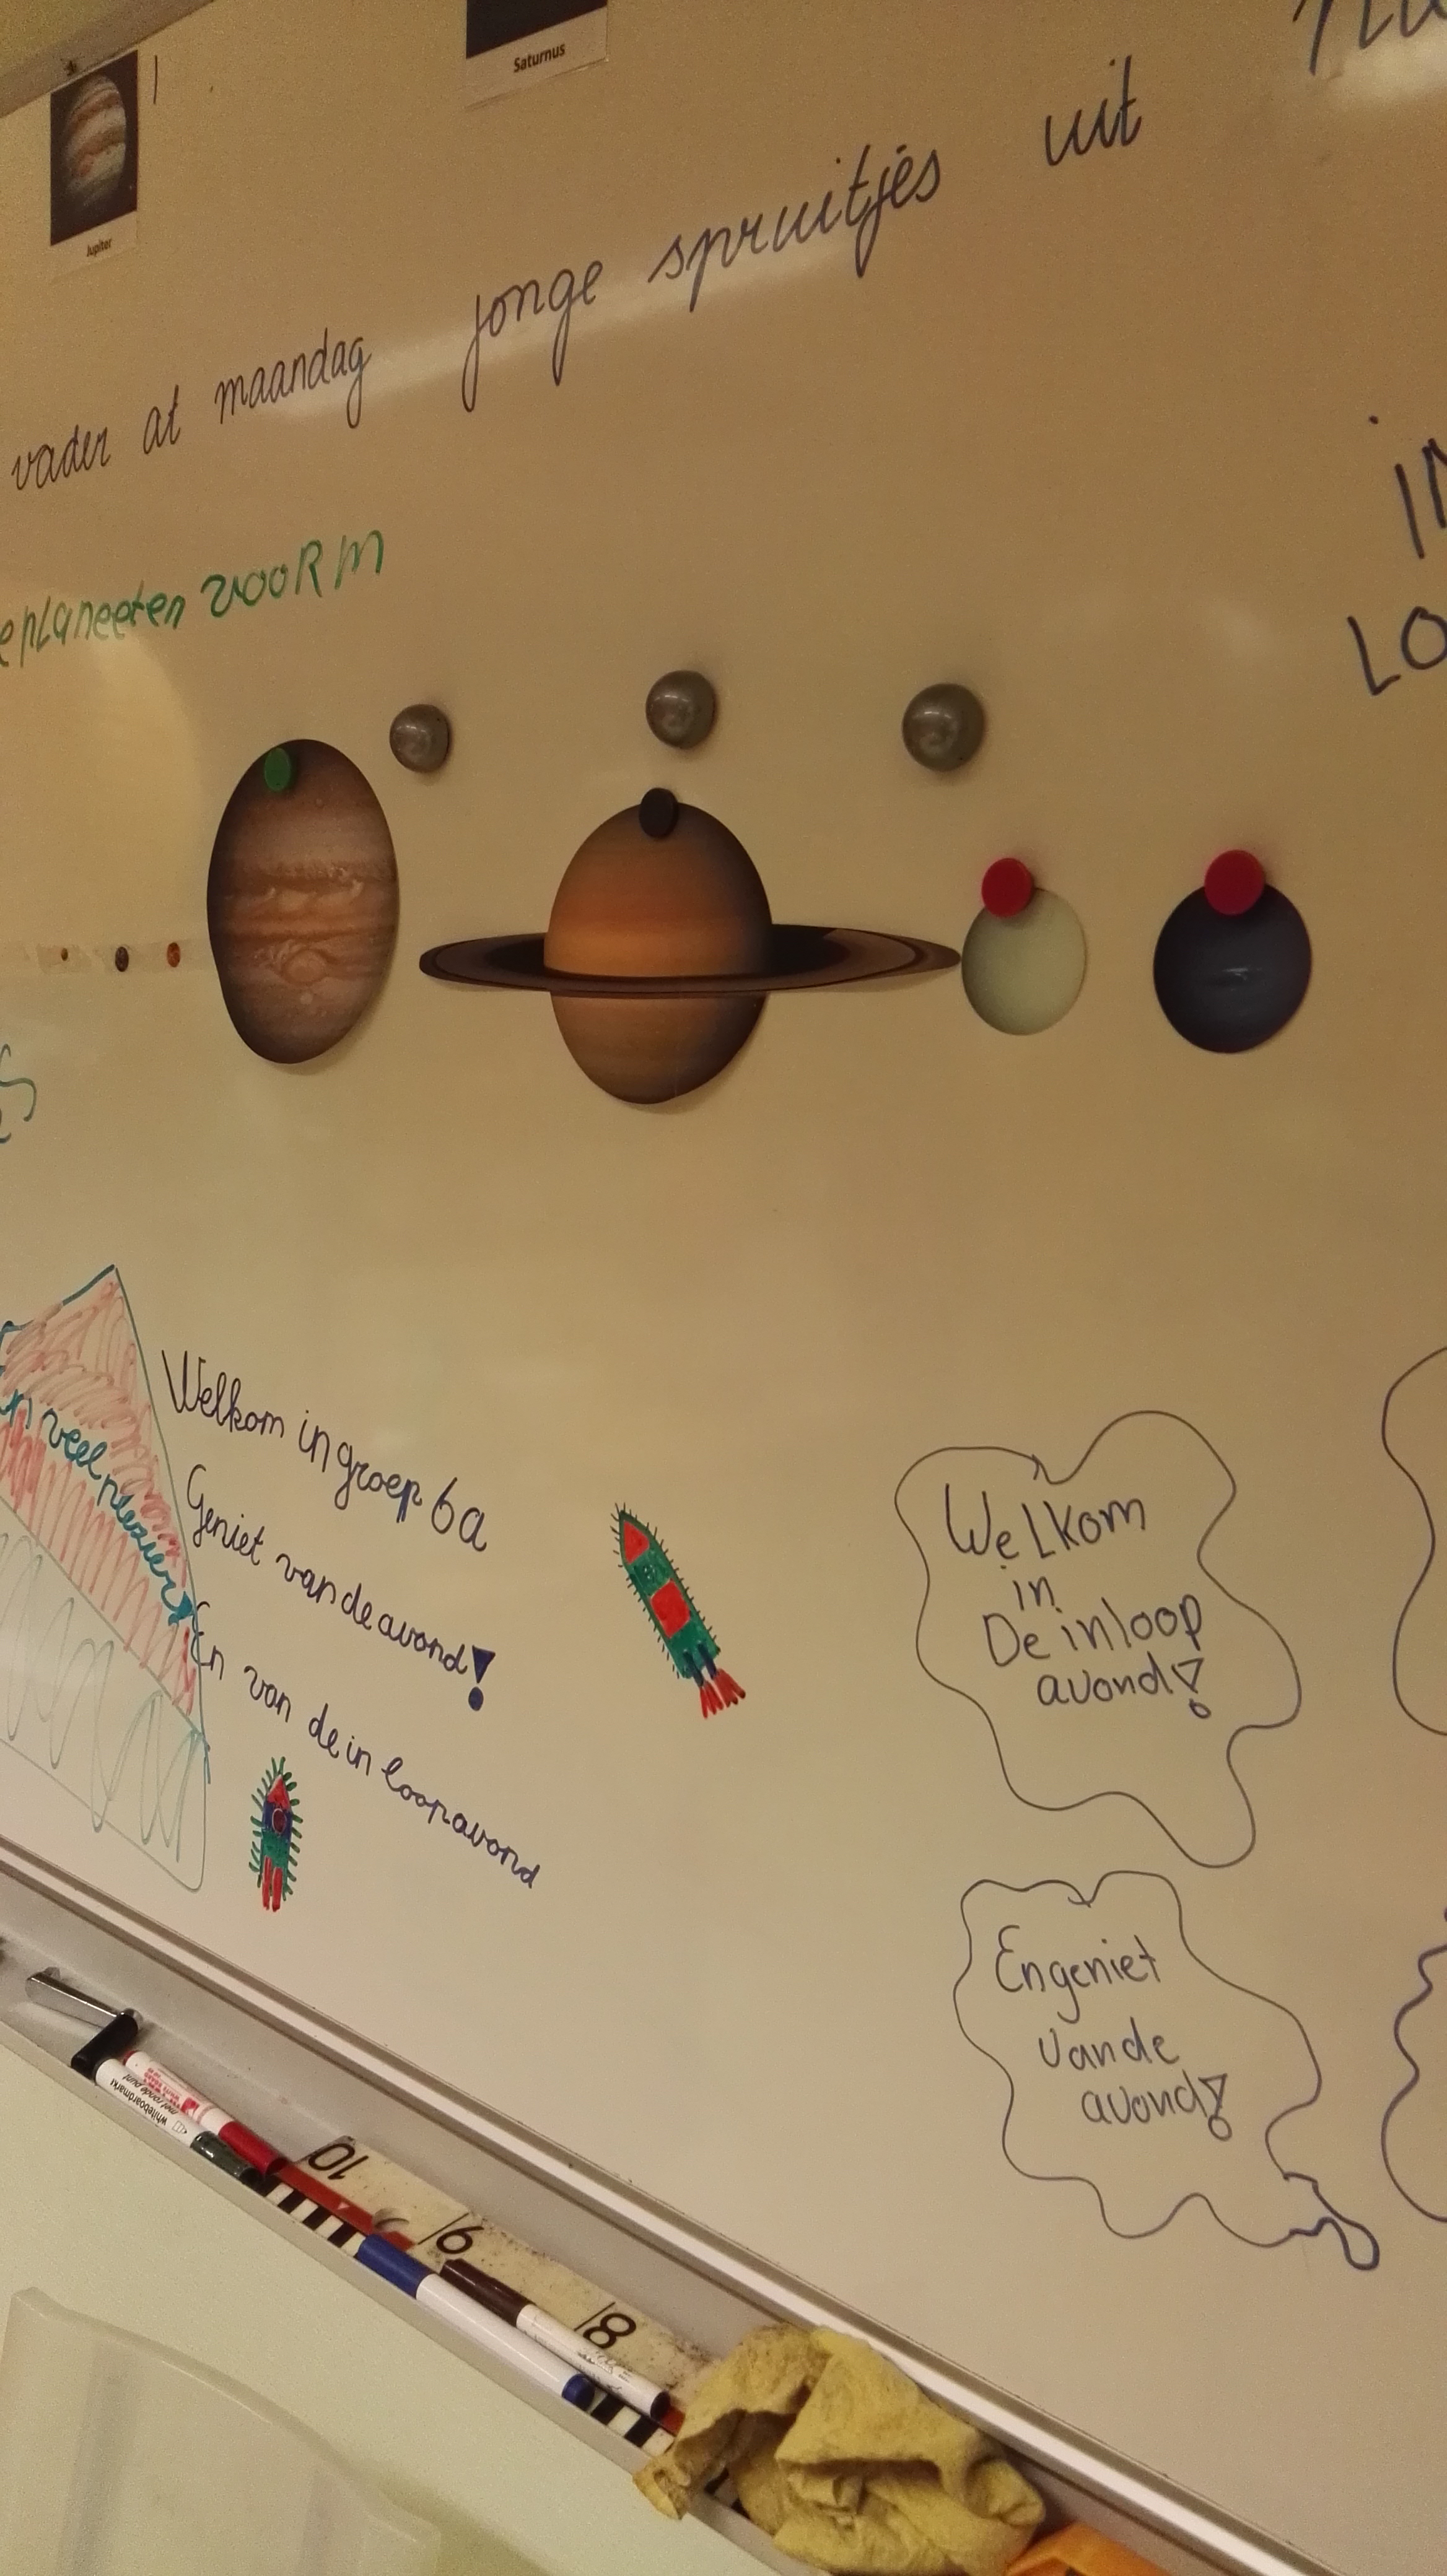 Saturnus
Jupiter
vader at maandag jonge spruitjes uit
planeeten vooRM
Welkom in groep 6a
Geniet van de avond!
En van de in loopavond
veel plezier
Welkom
in
De inloop
avond!
En geniet
van de
avond!
whiteboardmarker
met ronde punt
10
9
8